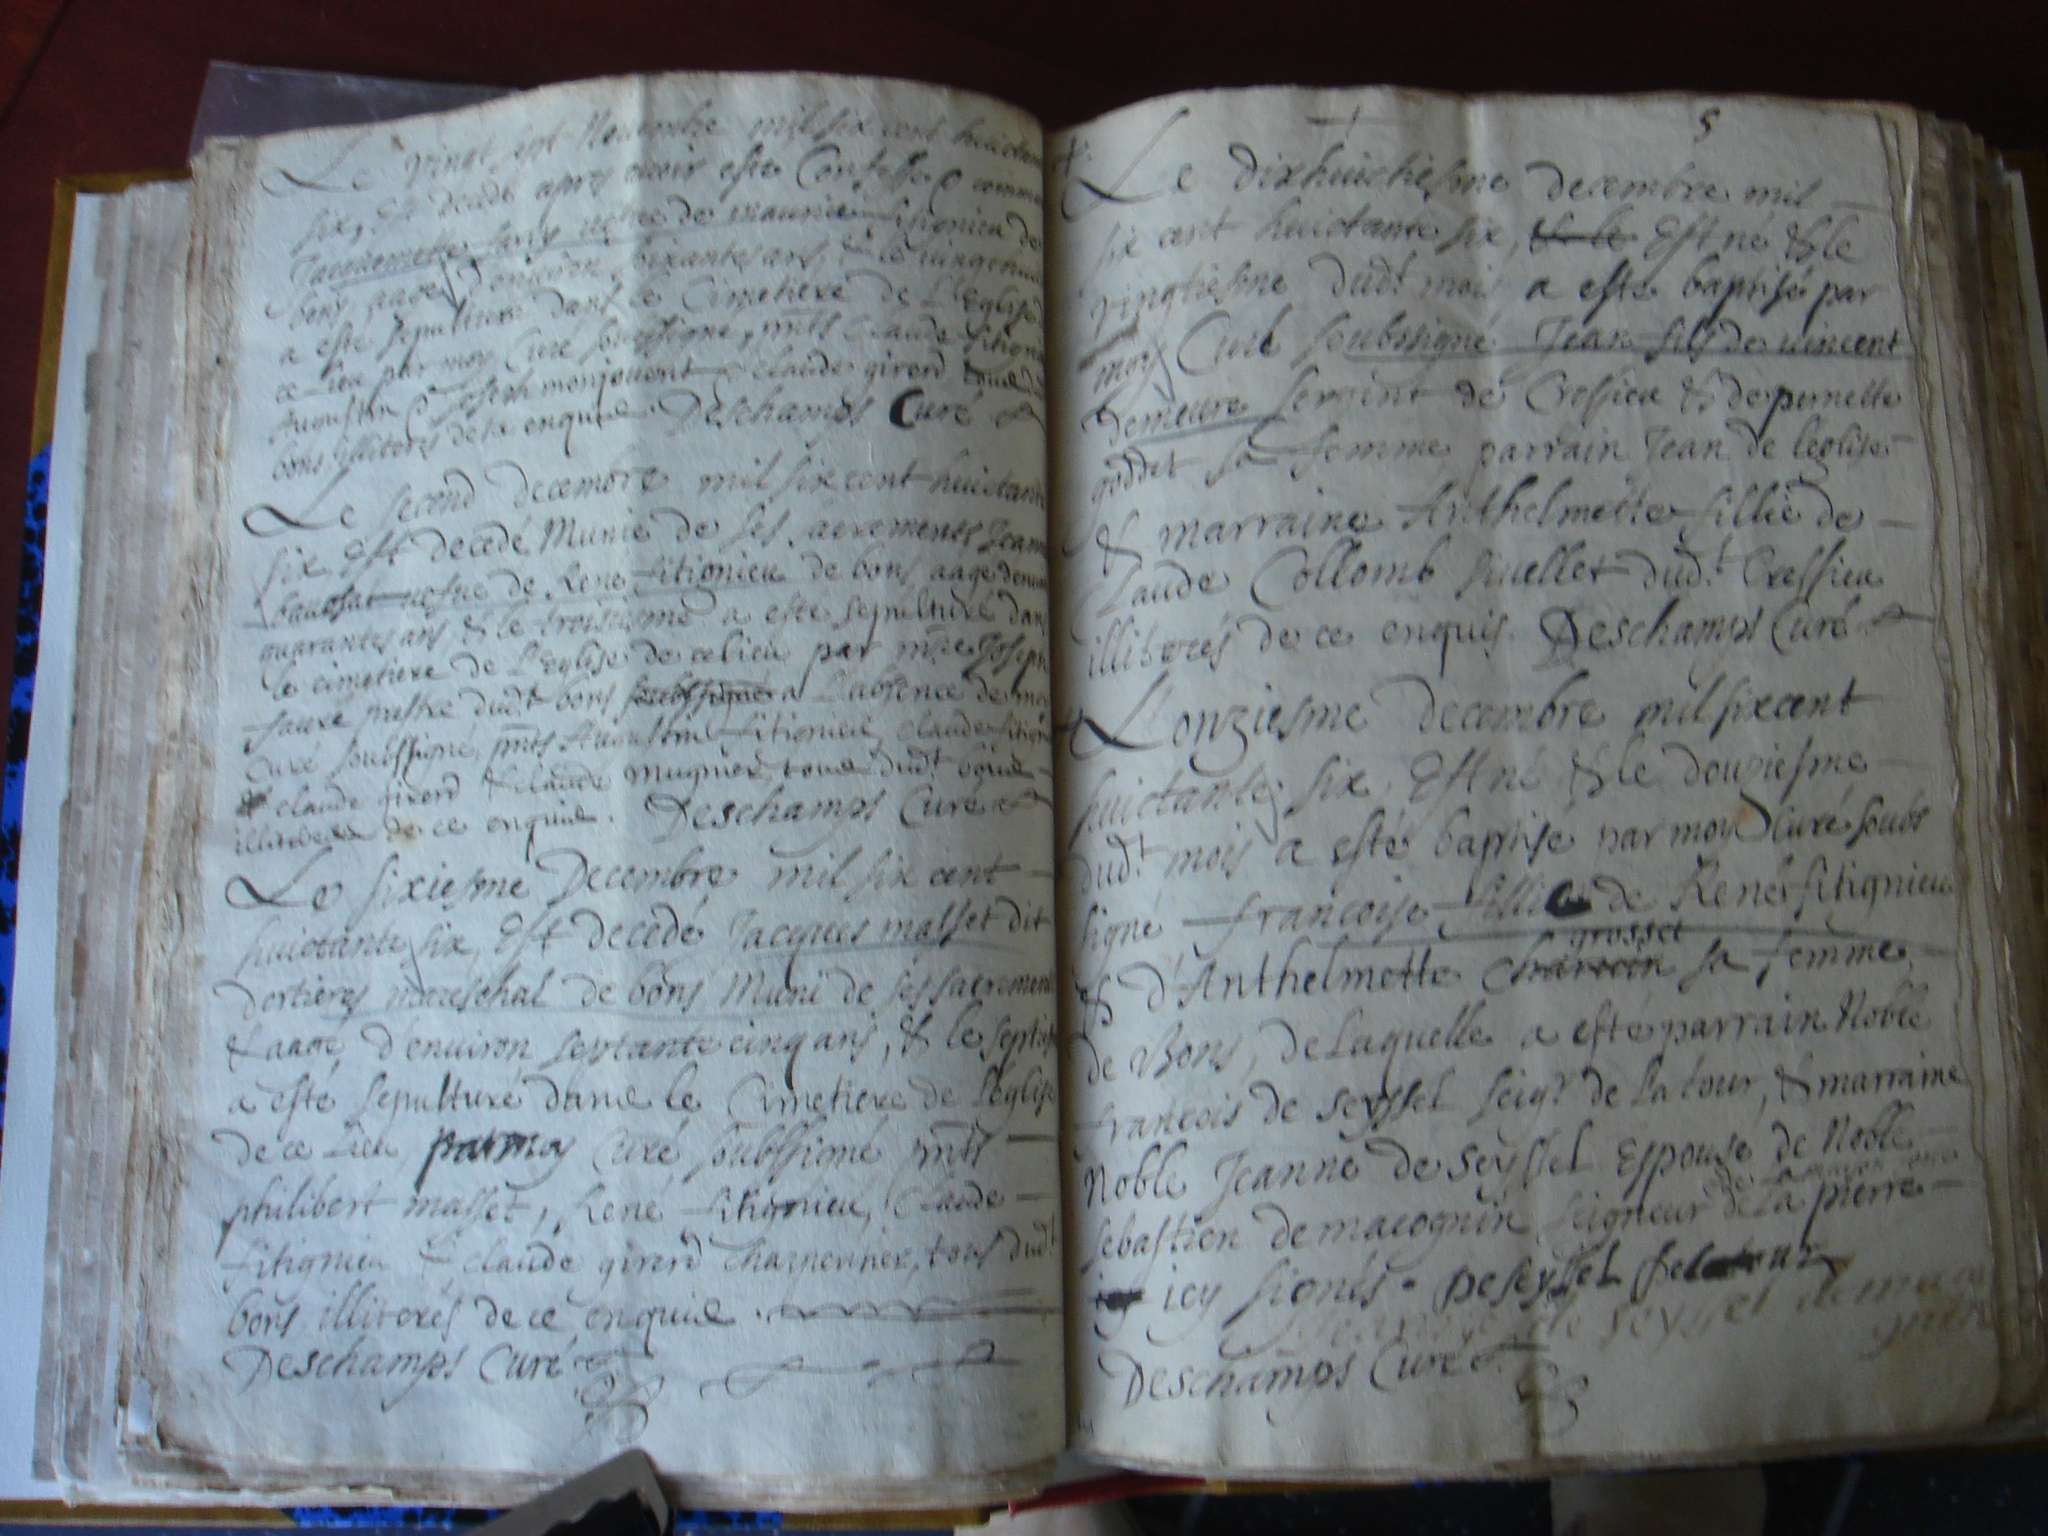 Le vingt sept Novembre mil six cent huictante
six, Est decedé apres avoir esté Confessé & commu
Jacquemette vefve de Fitignieu de
bons, aagé d'environ sixante ans, & le
a esté sepulturé dans le Cimetiere de L'Eglise de
ce Lieu par moy Curé soubssigné, pnts Claude Fitigni
Augustin & Joseph monjouvent & Claude girerd tous de
bons illiterés de ce enquis. Deschamps Curé
Le second decembre mil six cent huictante
six Est decedé Munie de ses Jeanne
de René fitignieu de bons aagé denviron
quarantes ans & le troisiesme a esté sepulturé dans
le cimetiere de L'Eglise de ce lieu par mre Joseph
faure prestre dudt bons soubssigné a L'absence de moy
Curé soubssigné, pnts Augustin fitignieu, claude fitign
& claude girerd & claude mugnier tous dudt bons
illiterés de ce enquis. Deschamps Curé
Le sixiesme Decembre mil six cent
huictante six, Est decedé Jacques masset dit
dortieres mareschal de bons Muni de ses sacrements
& aagé d'environ septante cinq ans, & le septies
a esté sepulturé dans le Cimetiere de L'Eglise
de ce Lieu par moy Curé, soubssigné pnts
philibert masset, René fitignieu, Claude
fitignieu & claude girerd Charpentier, tous dudt
bons illiterés de ce enquis.
Deschamps Curé
5
Le dixhuictiesme decembre mil
six cent huictante six, & le Est né & le
vingtiesme dudt mois a esté baptisé par
moy Curé soubssigné Jean fils de vincent
demeure de Cressieu & de pernette
goddet sa femme parrain Jean de léglise
& marraine Anthelmette fillie de
Claude Collomb dudt Cressieu
illiterés de ce enquis Deschamps Curé
Lonziesme decembre mil six cent
huictante six, Est né & le douziesme
dudt mois a esté baptisé par moy Curé soubs
signé francoise fillie de René fitignieu
grosset
& d'Anthelmette sa femme
de Bons, de Laquelle a esté parrain Noble
francois de Seyssel Seigr de La tour, & marraine
Noble Jeanne de Seyssel Espouse de Noble
sebastien de macognin seigneur de La pierre
icy signés. De Seyssel
Jeanne de Seyssel de maco
gnin
Deschamps Curé